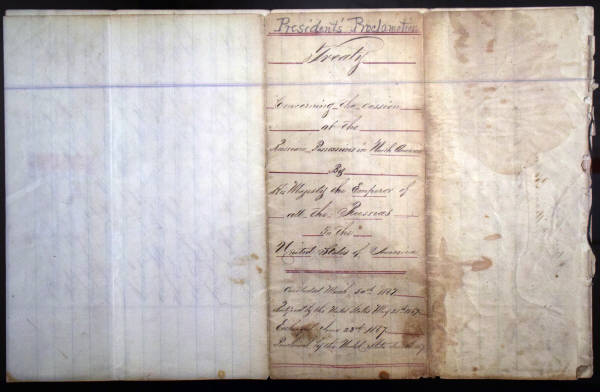 President's Proclamation
Treaty
Concerning the cession
of the
Russian Possessions in North America
By
His Majesty the Emperor of
all the Russias
To the
United States of America
Concluded March 30th 1867
Ratified by the United States May 28th 1867
Exchanged June 20th 1867
Proclaimed by the United States